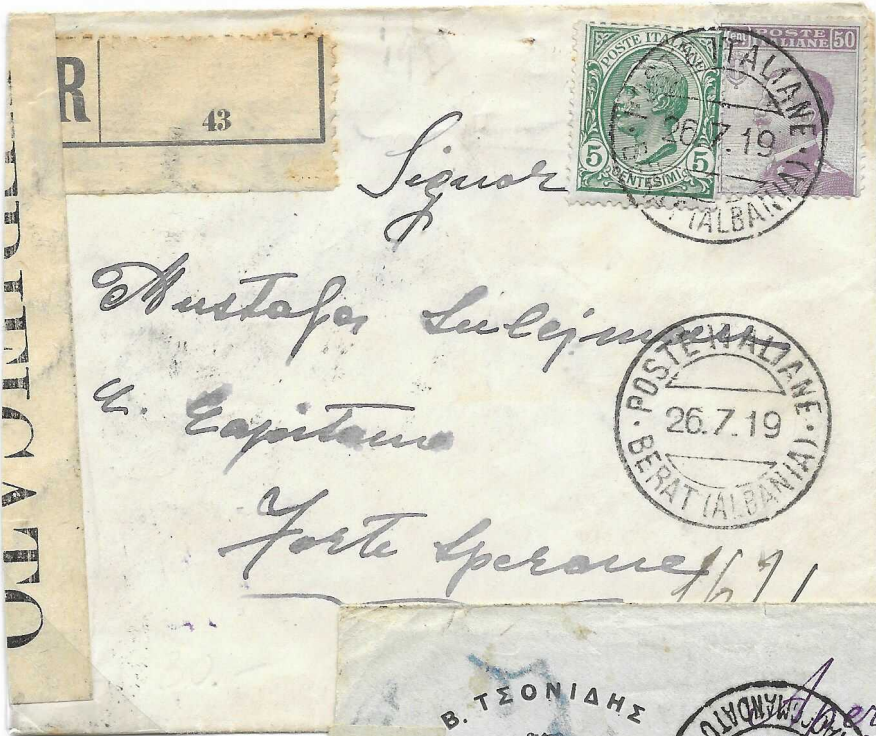 R
43
POSTE ITALIANE
5 5
CENTESIMI
POSTE ITALIANE 50
ITALIANE
26.7.19
(ALBANIA)
Signor
Mustafa Sulejman
Capitano
Forte Sperone
POSTE ITALIANE
26.7.19
BERAT (ALBANIA)
Β. ΤΣΟΝΙΔΗΣ